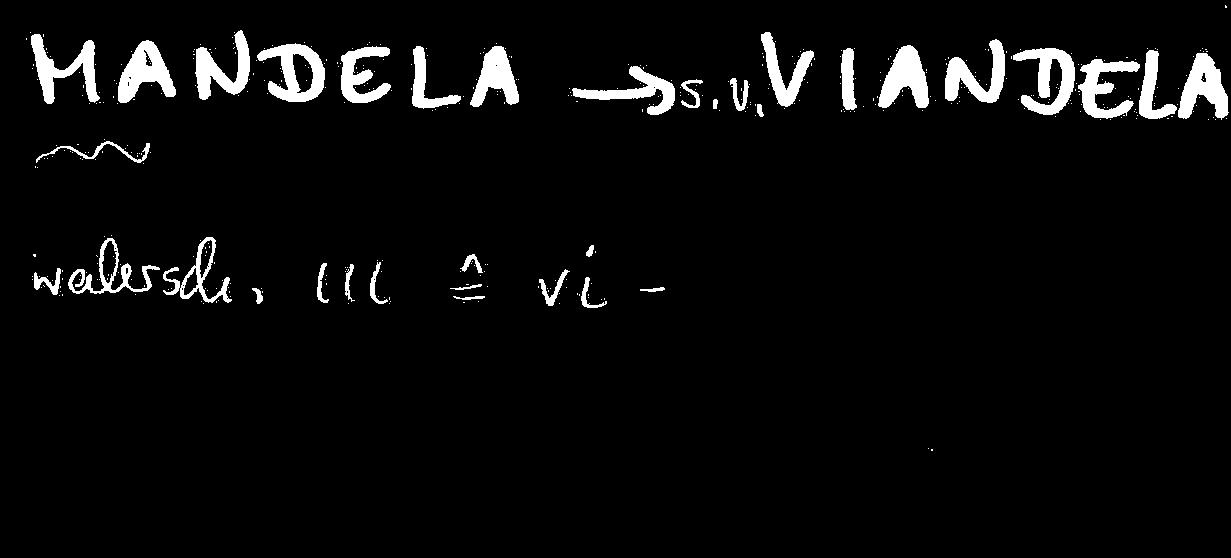 MANDELA → s.v. VIANDELA
walersch. ııı ≙ vi –